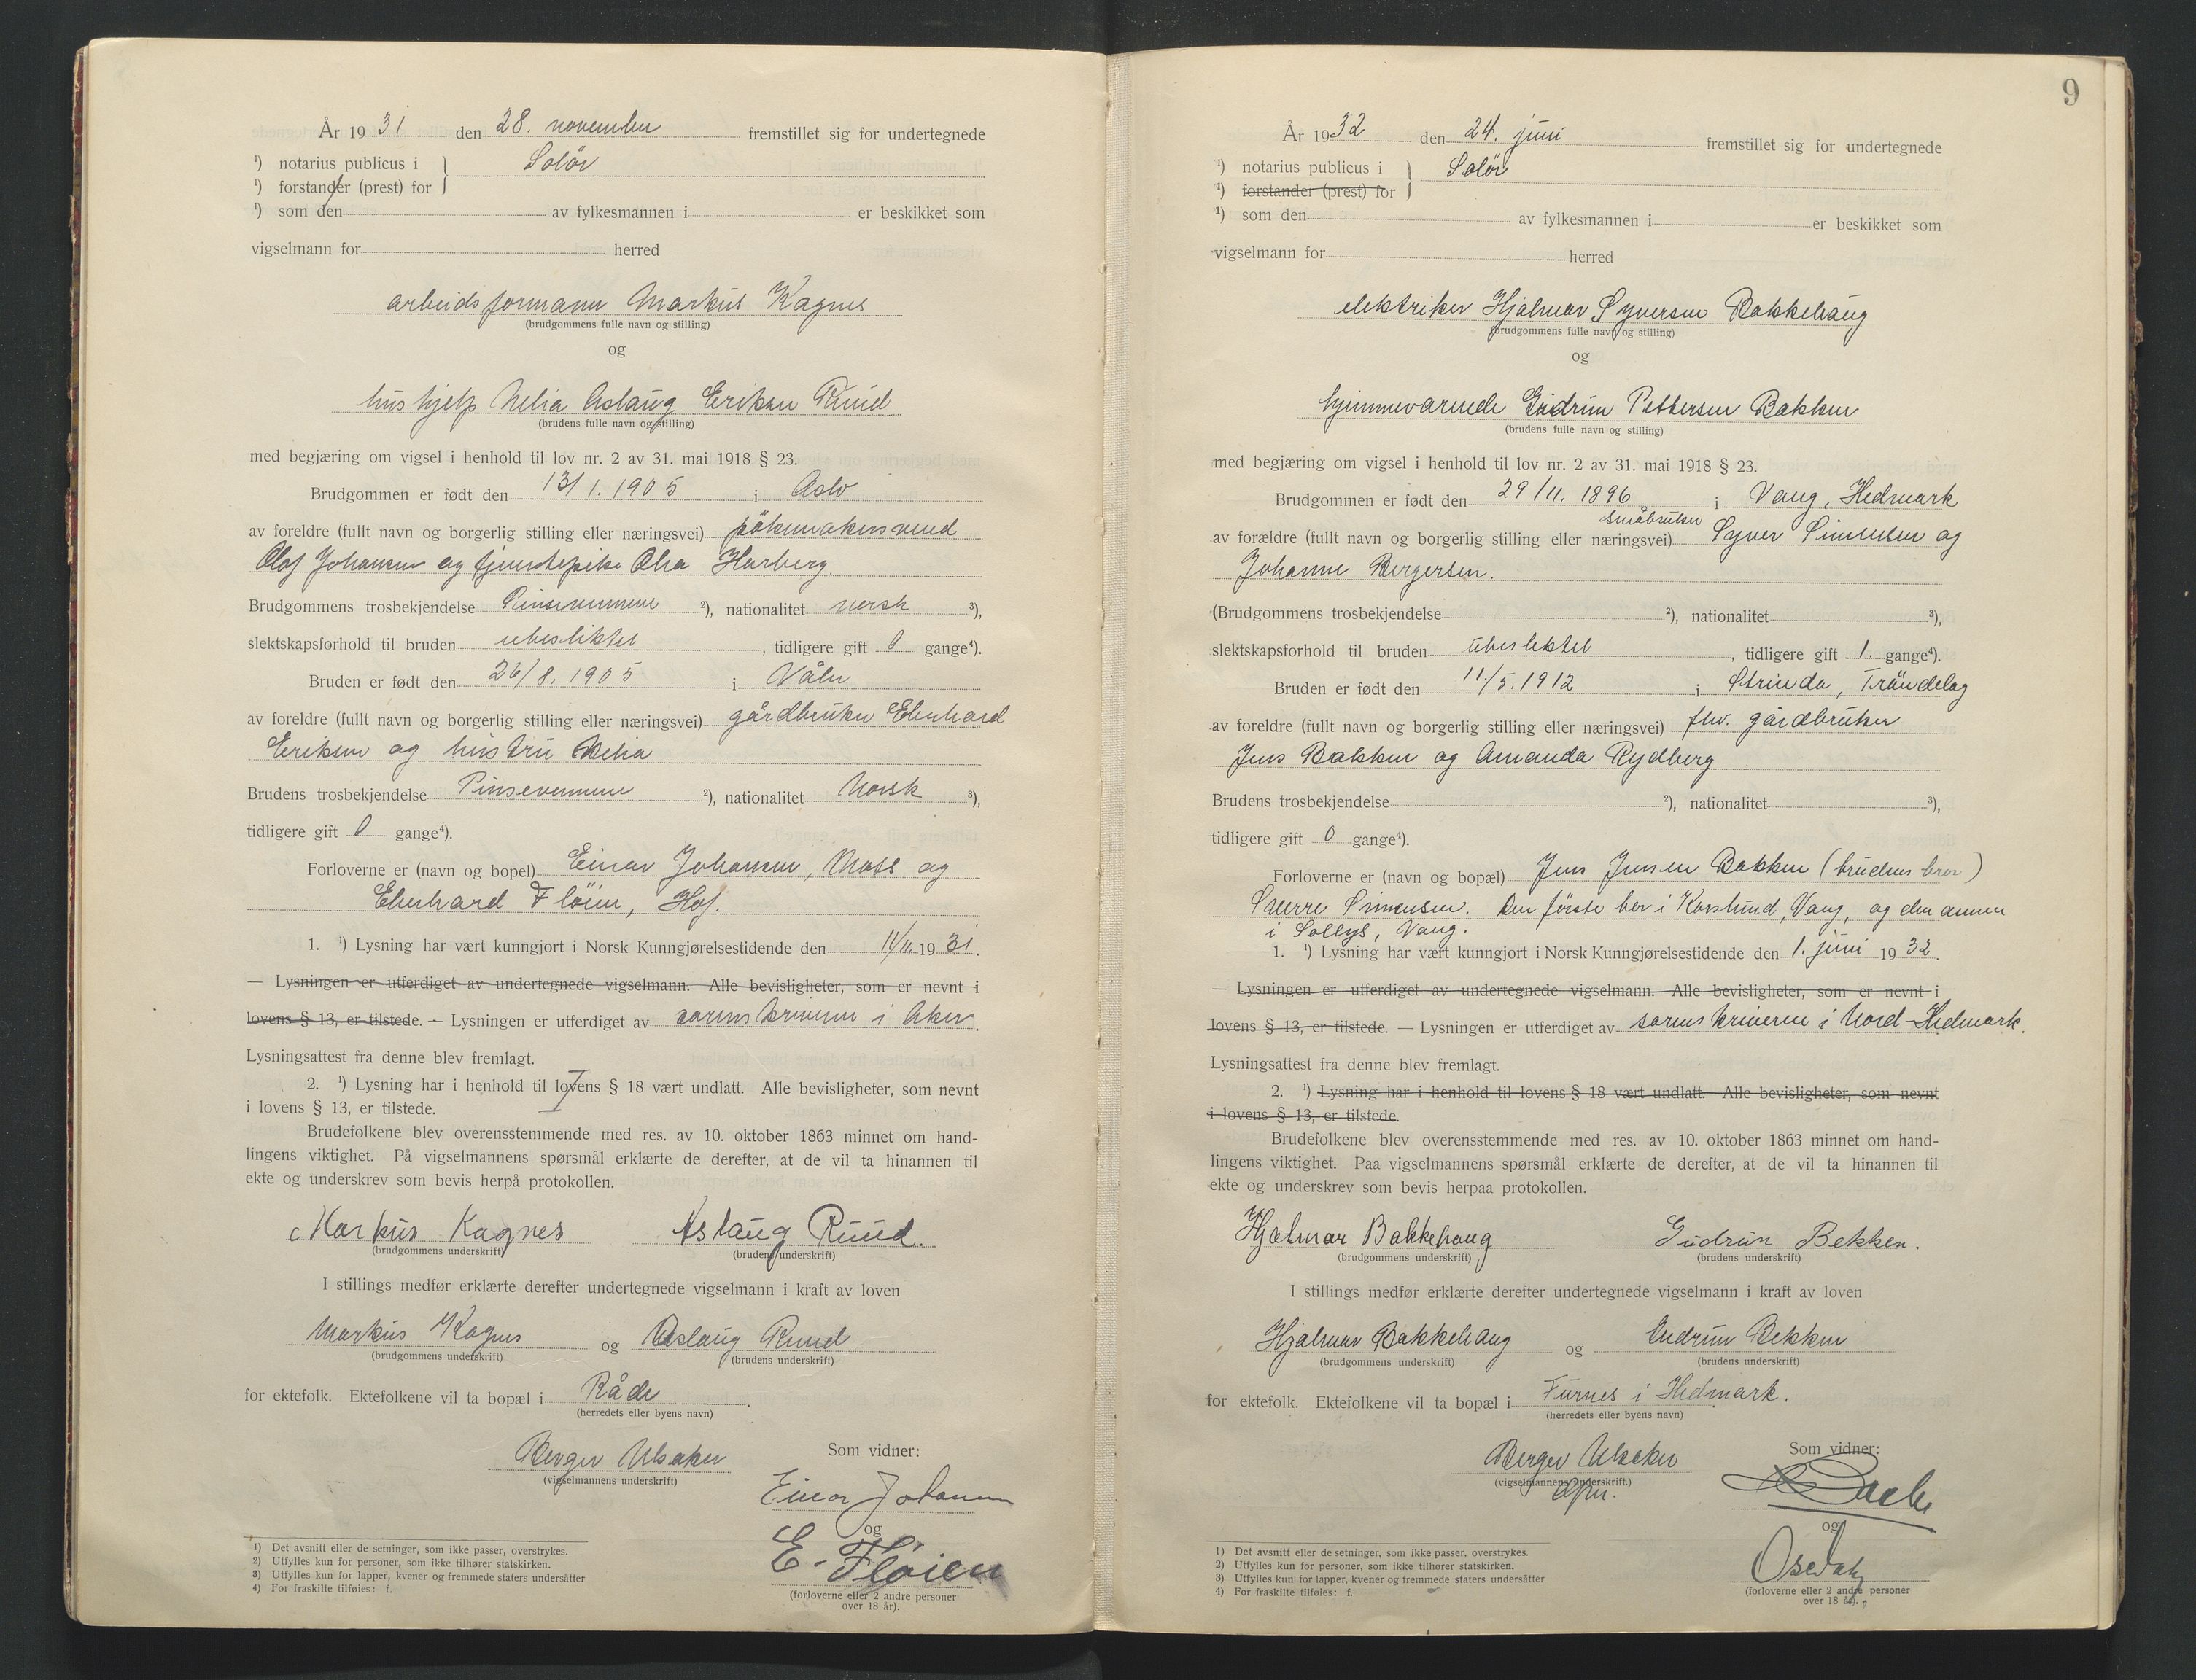 År 19 31 den 28. november fremstillet sig for undertegnede
¹) notarius publicus i } Solör
¹) forstander (prest) for
¹) som den av fylkesmannen i er beskikket som
vigselmann for herred
arbeidsformann Markus Kagnes
(brudgommens fulle navn og stilling)
og
hushjelp Aslaug Eriksen Ruud
(brudens fulle navn og stilling)
med begjæring om vigsel i henhold til lov nr. 2 av 31. mai 1918 § 23.
Brudgommen er født den 13/1. 1905 i Oslo
av foreldre (fullt navn og borgerlig stilling eller næringsvei)
Olaf Johansen og tjenestepike Harberg.
Brudgommens trosbekjendelse Pinsevennene ²), nationalitet norsk ³),
slektskapsforhold til bruden ubeslektet , tidligere gift 0 gange⁴).
Bruden er født den 26/8. 1905 i Våler
av foreldre (fullt navn og borgerlig stilling eller næringsvei) gårdbruker Eberhard
Eriksen og hustru Helia
Brudens trosbekjendelse Pinsevennene ²), nationalitet Norsk ³),
tidligere gift 0 gange⁴).
Forloverne er (navn og bopel) Einar Johansen, Moss og
Eberhard Flöien, Hof.
1. ¹) Lysning har vært kunngjort i Norsk Kunngjørelsestidende den 11/11. 19 31.
— Lysningen er utferdiget av undertegnede vigselmann. Alle bevisligheter, som er nevnt i
lovens § 13, er tilstede. — Lysningen er utferdiget av sorenskriveren i Aker.
Lysningsattest fra denne blev fremlagt.
2. ¹) Lysning har i henhold til lovens § 18 vært undlatt. Alle bevisligheter, som nevnt
i lovens § 13, er tilstede.
Brudefolkene blev overensstemmende med res. av 10. oktober 1863 minnet om hand-
lingens viktighet. På vigselmannens spørsmål erklærte de derefter, at de vil ta hinannen til
ekte og underskrev som bevis herpå protokollen.
Markus Kagnes Aslaug Ruud.
(brudgommens underskrift) (brudens underskrift)
I stillings medfør erklærte derefter undertegnede vigselmann i kraft av loven
Markus Kagnes og Aslaug Ruud
(brudgommens underskrift) (brudens underskrift)
for ektefolk. Ektefolkene vil ta bopæl i Råde.
(herredets eller byens navn)
Berger Ulsaker Som vidner:
(vigselmannens underskrift)
Einar Johansen
og
E. Fløien
(forloverne eller 2 andre personer
over 18 år).
1) Det avsnitt eller de setninger, som ikke passer, overstrykes.
2) Utfylles kun for personer, som ikke tilhører statskirken.
3) Utfylles kun for lapper, kvener og fremmede staters undersåtter
4) For fraskilte tilføies: f.
9
År 19 32 den 24. juni fremstillet sig for undertegnede
¹) notarius publicus i } Solör
¹) forstander (prest) for
¹) som den av fylkesmannen i er beskikket som
vigselmann for herred
elektriker Hjalmar Syversen Bakkehaug
(brudgommens fulle navn og stilling)
og
hjemmeværende Gudrun Pettersen Bakken
(brudens fulle navn og stilling)
med begjæring om vigsel i henhold til lov nr. 2 av 31. mai 1918 § 23.
Brudgommen er født den 29/11. 1896 i Vang, Hedmark
småbruker
av forældre (fullt navn og borgerlig stilling eller næringsvei) Syver Simensen og
Johanne Bergersen.
(Brudgommens trosbekjendelse ²), nationalitet ³),
slektskapsforhold til bruden ubeslektet , tidligere gift 1. gange⁴).
Bruden er født den 11/5. 1912 i Strinda, Tröndelag
av foreldre (fullt navn og borgerlig stilling eller næringsvei) fhv. gårdbruker
Jens Bakken og Amanda Rydberg
Brudens trosbekjendelse ²), nationalitet ³),
tidligere gift 0 gange⁴).
Forloverne er (navn og bopæl) Jens Jensen Bakken (brudens bror)
Sverre Simensen. Den förste bor i Korslund, Vang, og den annen
i Sollys, Vang.
1. ¹) Lysning har vært kunngjort i Norsk Kunngjørelsestidende den 1. juni 19 32.
— Lysningen er utferdiget av undertegnede vigselmann. Alle bevisligheter, som er nevnt i
lovens § 13, er tilstede. — Lysningen er utferdiget av sorenskriveren i Nord-Hedmark.
Lysningsattest fra denne blev fremlagt.
2. ¹) Lysning har i henhold til lovens § 18 vært undlatt. Alle bevisligheter, som nevnt
i lovens § 13, er tilstede.
Brudefolkene blev overensstemmende med res. av 10. oktober 1863 minnet om hand-
lingens viktighet. Paa vigselmannens spørsmål erklærte de derefter, at de vil ta hinannen til
ekte og underskrev som bevis herpaa protokollen.
Hjalmar Bakkehaug Gudrun Bekken.
(brudgommens underskrift) (brudens underskrift)
I stillings medfør erklærte derefter undertegnede vigselmann i kraft av loven
Hjalmar Bakkehaug og Gudrun Bekken
(brudgommens underskrift) (brudens underskrift)
for ektefolk. Ektefolkene vil ta bopæl i Furnes i Hedmark.
(herredets eller byens navn)
Berger Ulsaker Som vidner:
(vigselmannens underskrift.)
og
(forloverne eller 2 andre personer
over 18 år).
1) Det avsnitt eller de setninger, som ikke passer, overstrykes.
2) Utfylles kun for personer, som ikke tilhører statskirken.
3) Utfylles kun for lapper, kvener og fremmede staters undersåtter
4) For fraskilte tilføies: f.